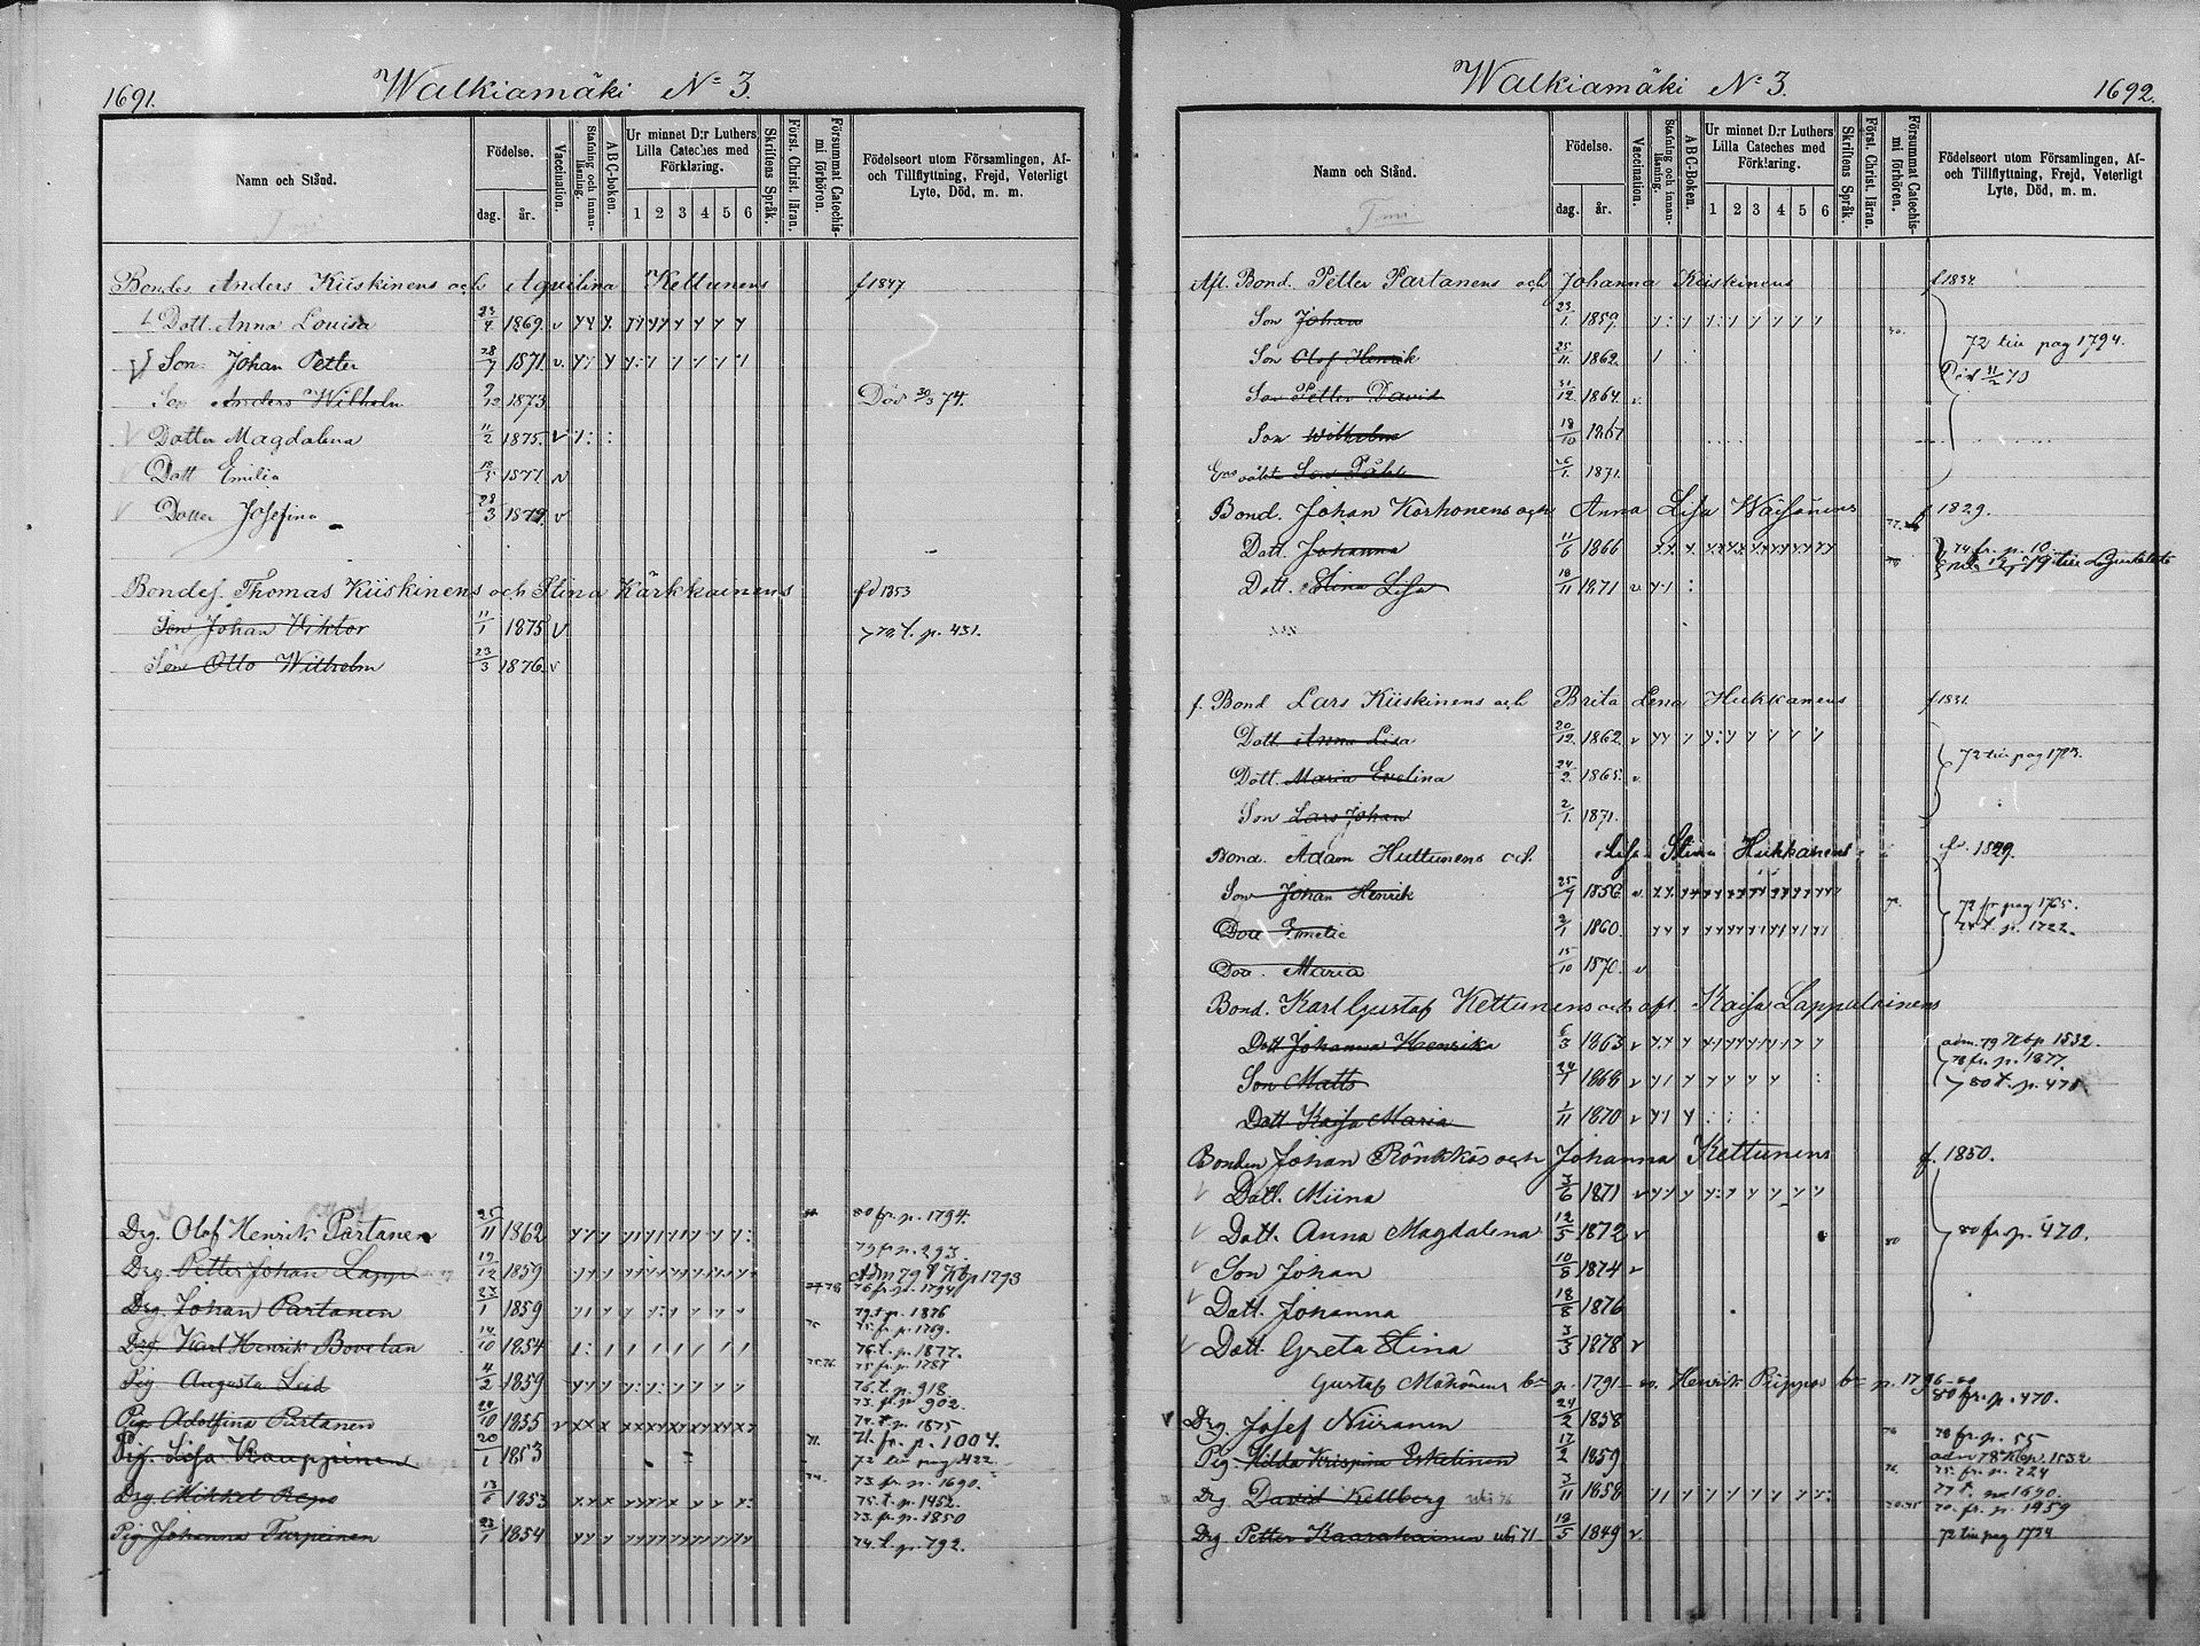 1691.
Walkiamäki No 3.
Namn och Stånd.
Födelse.
dag.
år.
Vaccination.
Stafning och innanläsning.
ABC-boken.
Ur minnet D:r Luthers Lilla Cateches med Förklaring.
1 2 3 4 5 6
Skriftens Språk.
Först. Christ. läran.
Försummat Catechismi förhören.
Födelseort utom Församlingen, Af- och Tillflyttning, Frejd, Veterligt Lyte, Död, m. m.
Bondes Anders Kiiskinens och Aquilina Kettunens f 1847
Dott. Anna Louisa 23/4 1869 v
Son Johan Petter 28/7 1871 v.
Son Anders Wilhelm 9/12 1873 Död 30/3 74.
Dotter Magdalena 11/2 1875. v
Dott Emilia 1877 v
Dotter Josefina 28/3 1879 v
Bondes. Thomas Kiiskinens och Stina Kärkkainens fd 1853
Son Johan Viktor 11/1 1875 v 79 t. p. 451.
Son Otto Wilhelm 23/3 1876 v
Drg. Olof Henrik Partanen 25/11 1862 80 fr. p. 1794.
Drg. Petter Johan Lapp 19/12 1859 79 fr p. 293.
Adm 79 Kbp 1293
Drg. Johan Partanen 23/1 1859 78 fr. p. 1794
79 t p. 1876
Drg. Karl Henrik Bovelan 14/10 1854 75 fr p. 1769.
76. t. p. 1877.
Pig. Augusta Leid 4/2 1859 75 fr. p. 1787
76. t. p. 918.
Pig. Adolfina Partanen 24/10 1855 v 73. fr. p. 902.
74. t. p. 1875
Pig. Lisa Kauppinen 20/1 1853 71. fr. p. 1004.
72 till pag 422
Drg. Mikkel Repo 13/6 1853 73. fr. p. 1690.
75. t. p. 1452.
Pig. Johanna Turpeinen 23/1 1854 73. fr. p. 1850
74. t. p. 792.
Walkiamäki No 3.
1692.
Namn och Stånd.
Födelse.
dag.
år.
Vaccination.
Stafning och innanläsning.
ABC-Boken.
Ur minnet D:r Luthers Lilla Cateches med Förklaring.
1 2 3 4 5 6
Skriftens Språk.
Först. Christ. läran.
Försummat Catechismi förhören.
Födelseort utom Församlingen, Af- och Tillflyttning, Frejd, Veterligt Lyte, Död, m. m.
Afl. Bond. Petter Partanens och Johanna Kiiskinens f 1834
Son Johan 23/1. 1859
Son Olof Henrik 25/11. 1862. 72 till pag 1794.
Son Petter David 31/12 1864. v.
Son Wilhelm 18/10 1867
Son Påhl 26/1. 1871.
Bond. Johan Korhonens och Anna Lisa Wäisänens f 1829.
Dott. Johanna 11/6 1866 74 fr. p. 10.
Dott. Stina Lisa 18/11 1871 v
f. Bond Lars Kiiskinens och Brita Lena Hukkanens f 1831.
Dott Anna Lisa 20/12. 1862 v
Dott. Maria Evelina 24/2. 1865. v. 72 till pag 1783.
Son Lars Johan 2/1. 1871.
Bond. Adam Huttunens och Lisa Stina Hukkanens f. 1829.
Son Johan Henrik 25/9 1856 v.
Dott Emelie 2/1 1860. 72 fr pag 1765.
74 t. p. 1722.
Dott. Maria 15/10 1870. v
Bond. Karl Gustaf Kettunens och afl. Kaisa Lappalainens
Dott Johanna Henrika 6/3 1863 v adm. 79 Kbp 1532.
78 fr. p. 1877.
Son Matts 24/1 1868 v 80 t. p. 478.
Dott Kaisa Maria 1/11 1870 v
Bonden Johan Rönkkös och Johanna Kettunens f. 1850.
Dott. Miina 3/6 1871 v
Dott. Anna Magdalena 12/5 1872 v 80 fr. p. 470.
Son Johan 10/8 1874 v
Dott. Johanna 18/8 1876
Dott. Greta Stina 3/3 1878 v
Gustaf Mähönens bn p. 1791 Henrik Piippos bn p. 1796
Drg. Josef Niiranen 24/2 1858 80 fr. p. 470.
Pig. Hilda Krispina Eskelinen 17/2 1859 78 fr. p. 55
adm 78 Kbp. 1532
Drg David Kellberg 3/11 1858 75. fr. p. 224
77 t. p. 1690.
Drg. Petter Kaarakainen ubi 71 19/5 1849 v. 70. fr. p. 1959
72 till pag 1724